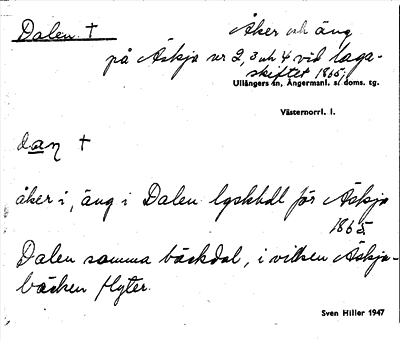 Dalen † Åker och äng
på Äskja nr 2, 3 och 4 vid laga-
skiftet 1865.
Ullångers sn, Ångermanl. s. doms. tg.
Västernorrl. l.
dan †
åker i, äng i Dalen lgskhdl för Äskja
1865
Dalen samma bäckdal, i vilken Äskja-
bäcken flyter.
Sven Hiller 1947